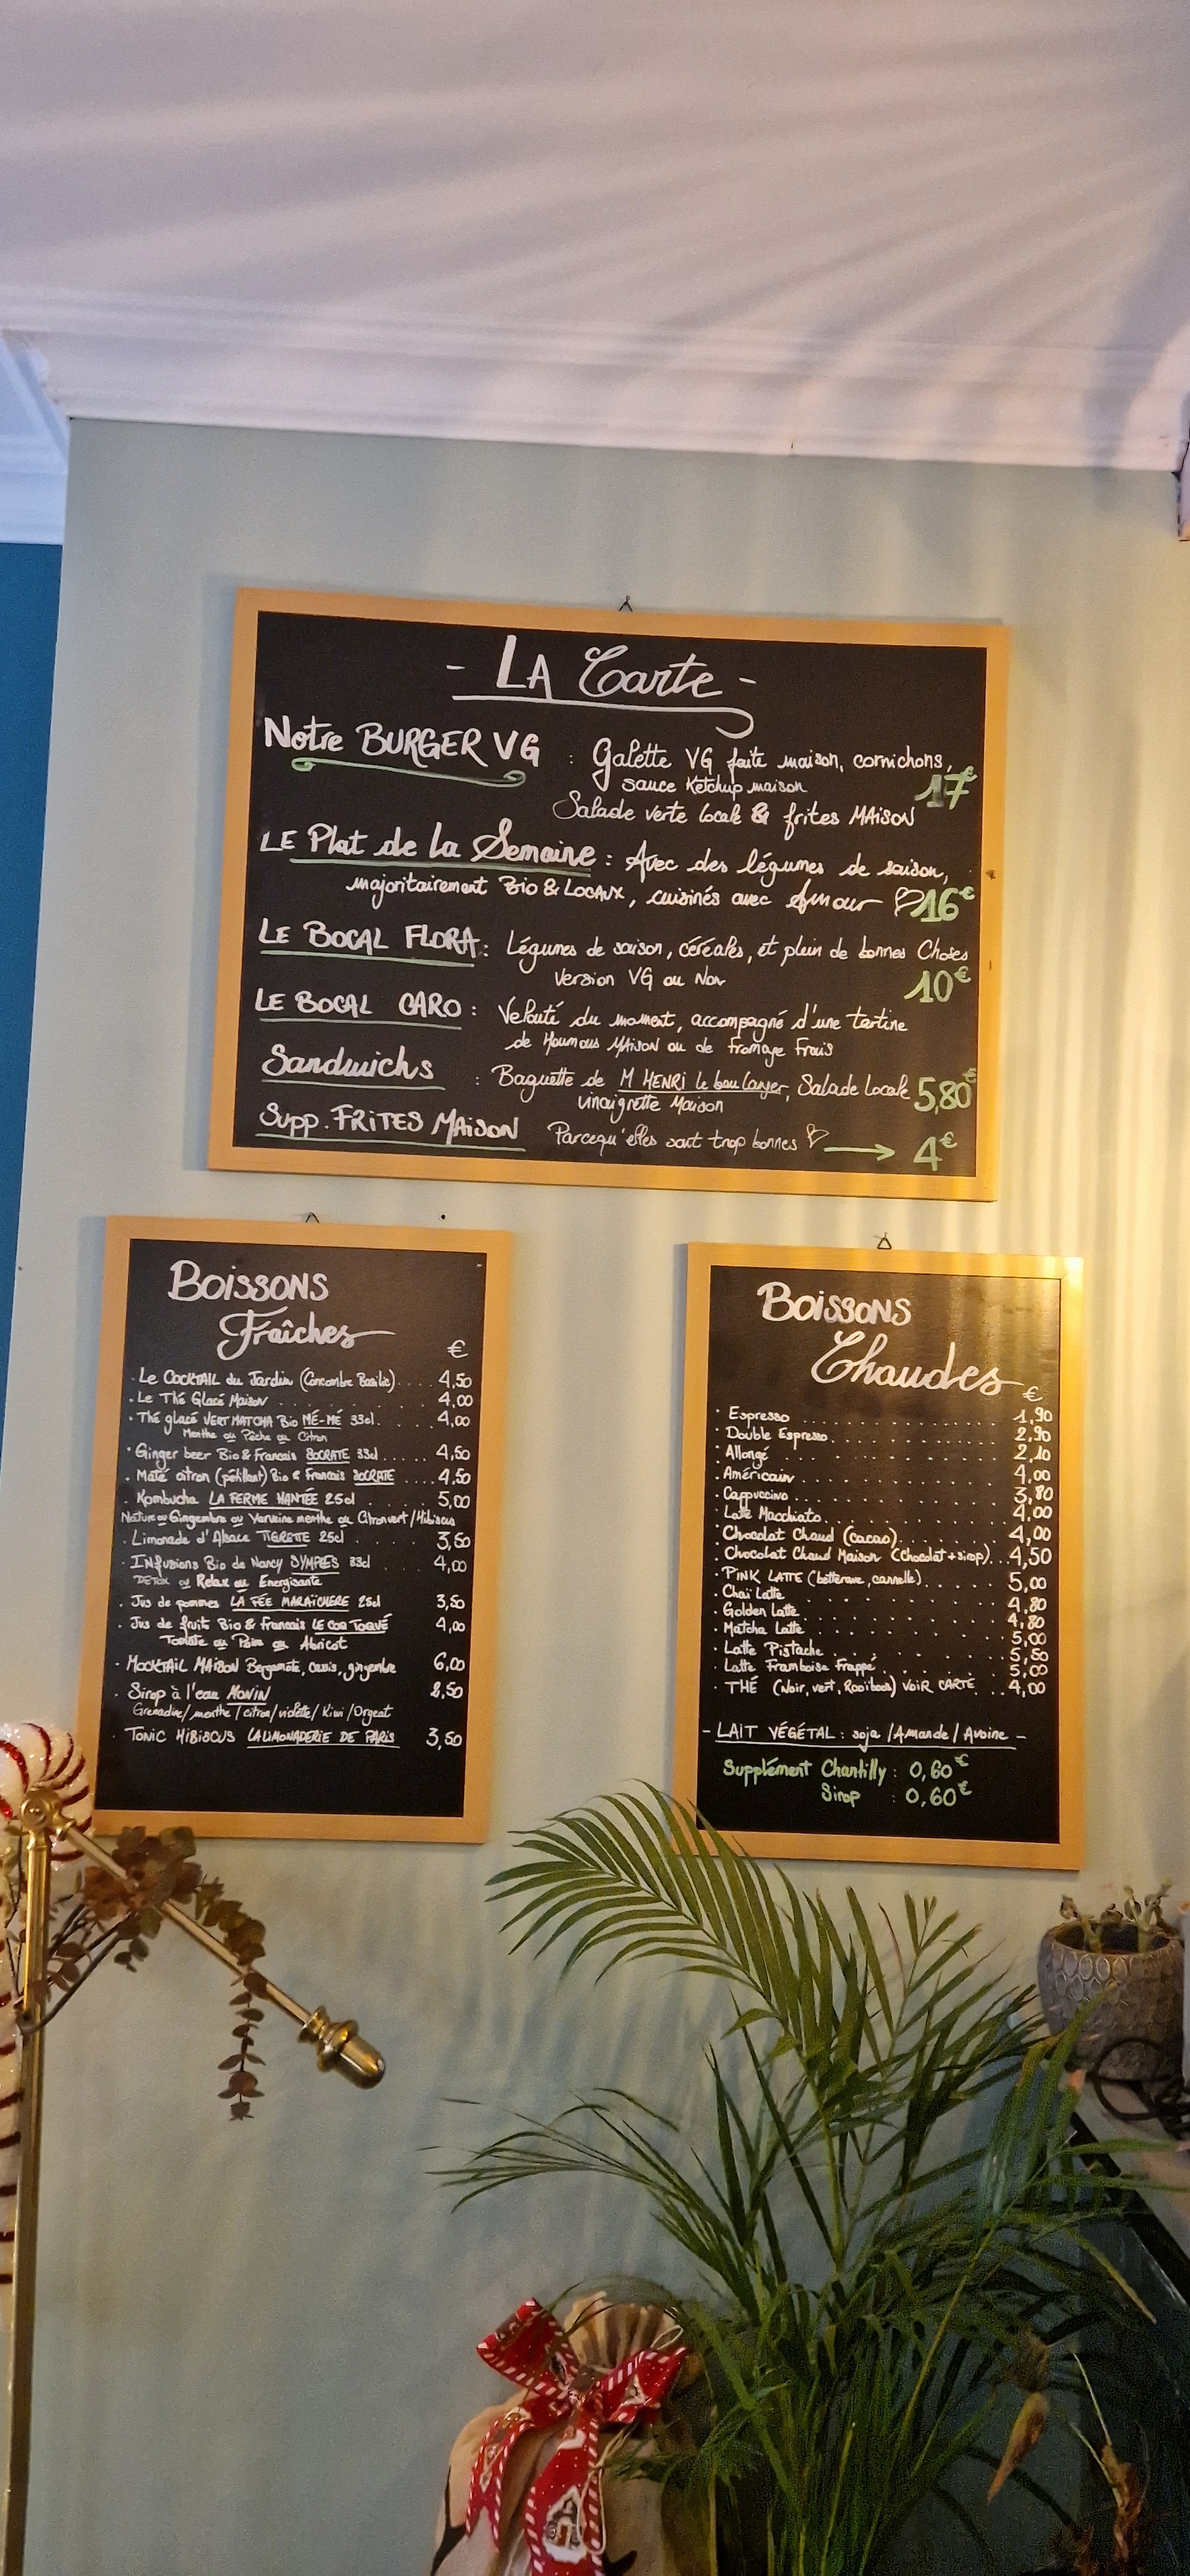 - LA Carte -
Notre BURGER VG : Galette VG faite maison, cornichons,
sauce Ketchup maison 17€
Salade verte locale & frites MAiSON
LE Plat de la Semaine : Avec des légumes de saison,
majoritairement Bio & LOCAUX, cuisinés avec Amour ♡ 16€
LE BOCAL FLORA : Légumes de saison, céréales, et plein de bonnes Choses
Version VG ou Non 10€
LE BOCAL CARO : Velouté du moment, accompagné d'une tartine
de Houmous MAISON ou de Fromage Frais
Sandwichs : Baguette de M HENRI le boulanger, Salade Locale 5,80€
vinaigrette Maison
Supp. FRITES MAiSON Parcequ'elles sont trop bonnes ♡ → 4€
BOiSSONS
Fraîches
€
. Le COCKTAIL du Jardin (Concombre Basilic) .... 4,50
. Le Thé Glacé Maison ........ 4,00
. Thé glacé VERT MATCHA Bio MÉ-MÉ 33cl .... 4,00
Menthe ou Pêche ou Citron
. Ginger beer Bio & Francais SOCRATE 33cl ..... 4,50
. Maté citron (pétillant) Bio & Francais SOCRATE ... 4,50
. Kombucha LA FERME HANTÉE 25cl . . . 5,00
Nature ou Gingembre ou Verveine menthe ou Citron vert/Hibiscus
. Limonade d'Alsace TIGRETTE 25cl . . . 3,50
. INfusions Bio de Nancy SYMPLES 33cl . . 4,00
DETOX ou Relax ou Energisante
. Jus de pommes LA FÉE MARAÎCHERE 25cl 3,50
. Jus de fruits Bio & Francais LE COQ TOQUÉ 4,00
Tomate ou Poire ou Abricot
. MOCKTAIL MAISON Bergamote, cassis, gingembre 6,00
. Sirop à l'eau MONIN 2,50
Grenadine/menthe/citron/violette/Kiwi/Orgeat
. TONIC HIBISCUS LA LIMONADERIE DE PARIS 3,50
BOiSSONS
Chaudes
€
. Espresso .............. 1,90
. Double Espresso ............ 2,90
. Allongé .............. 2,10
. Américain .............. 4,00
. Cappuccino .............. 3,80
. Latte Macchiato ............ 4,00
. Chocolat Chaud (cacao) ........ 4,00
. Chocolat Chaud Maison (Chocolat + sirop) ... 4,50
. PINK LATTE (betterave, cannelle) ..... 5,00
. Chaï Latte ............ 4,80
. Golden Latte ............ 4,80
. Matcha Latte ............ 5,00
. Latte Pistache ............ 5,50
. Latte Framboise Frappé ........ 5,00
. THÉ (Noir, vert, Rooïbos) VOIR CARTE ... 4,00
- LAIT VÉGÉTAL : soja /Amande / Avoine -
Supplément Chantilly : 0,60€
Sirop : 0,60€